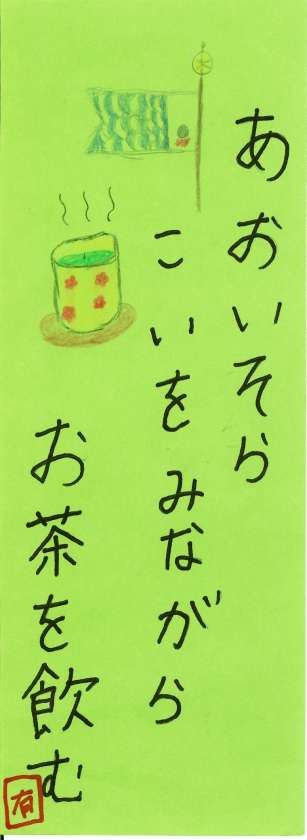 あおいそら
こいをみながら
お茶を飲む
有